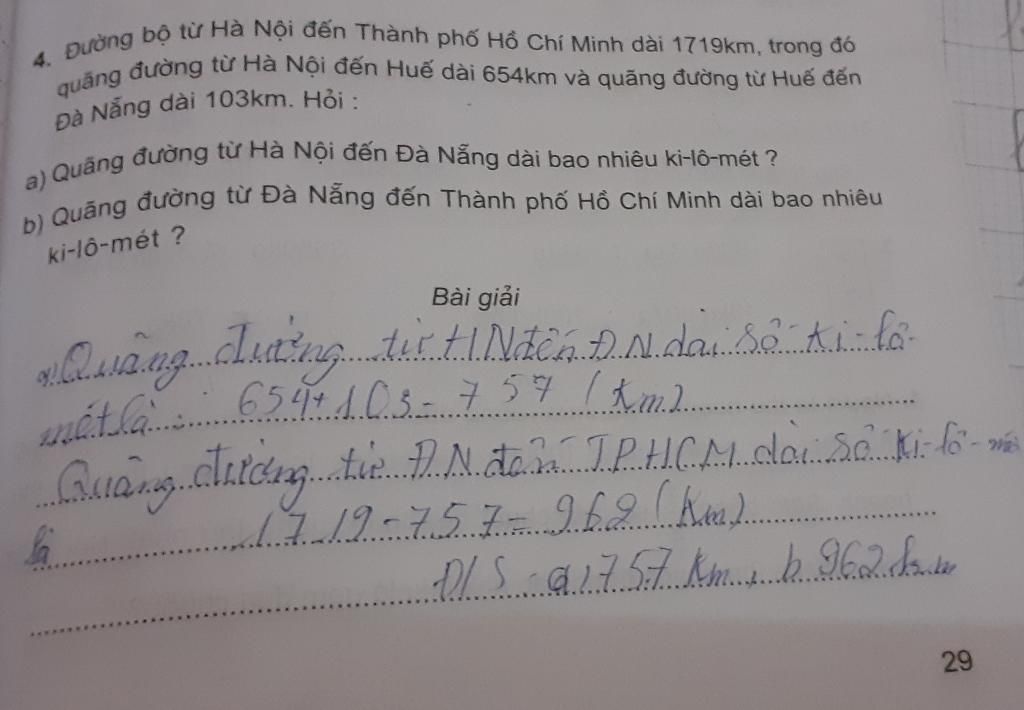 4. Đường bộ từ Hà Nội đến Thành phố Hồ Chí Minh dài 1719km, trong đó
quãng đường từ Hà Nội đến Huế dài 654km và quãng đường từ Huế đến
Đà Nẵng dài 103km. Hỏi :
a) Quãng đường từ Hà Nội đến Đà Nẵng dài bao nhiêu ki-lô-mét ?
b) Quãng đường từ Đà Nẵng đến Thành phố Hồ Chí Minh dài bao nhiêu
ki-lô-mét ?
Bài giải
a) Quãng đường từ HN đến ĐN dài số ki-lô-
mét là : 654+103= 757 (km)
Quãng đường từ ĐN đến TPHCM dài số ki-lô-mét
là 1719-757=962 (km)
Đ/S a, 757 km, b 962 km
29